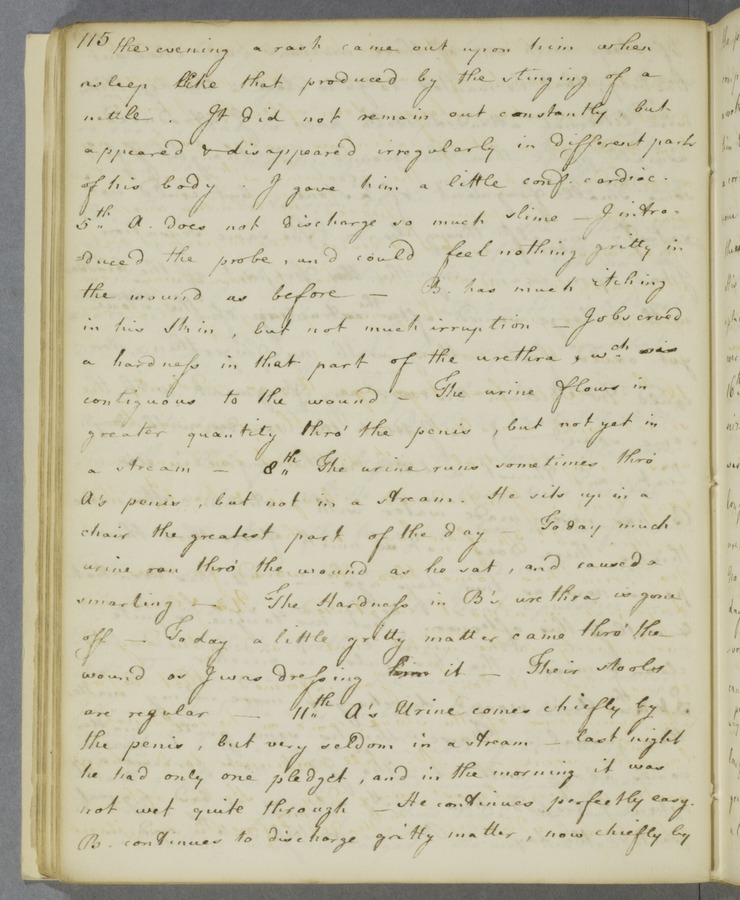 115 the evening a rash came out upon him when
asleep like that produced by the stinging of a
nettle. It did not remain out constantly, but
appeared & disappeared irregularly in different parts
of his body. I gave him a little conf. cardiac.
5th A. does not discharge so much slime - I intro-
duced the probe, and could feel nothing gritty in
the wound as before - B. has much itching
in his skin, but not much irruption - I observed
a hardness in that part of the urethra, wch is
contiguous to the wound - The urine flows in
greater quantity thro' the penis, but not yet in
a stream - 8th The urine runs sometimes thro'
A's penis, but not in a stream. He sits up in a
chair the greatest part of the day - Today much
urine ran thro' the wound as he sat, and caused a
smarting - The Hardness in B's urethra is gone
off - Today a little gritty matter came thro' the
wound as I was dressing him it - Their stools
are regular - 11th A's Urine comes chiefly by
the penis, but very seldom in a stream - last night
he had only one pledget, and in the morning it was
not wet quite through - He continues perfectly easy.
B. continues to discharge gritty matter, now chiefly by